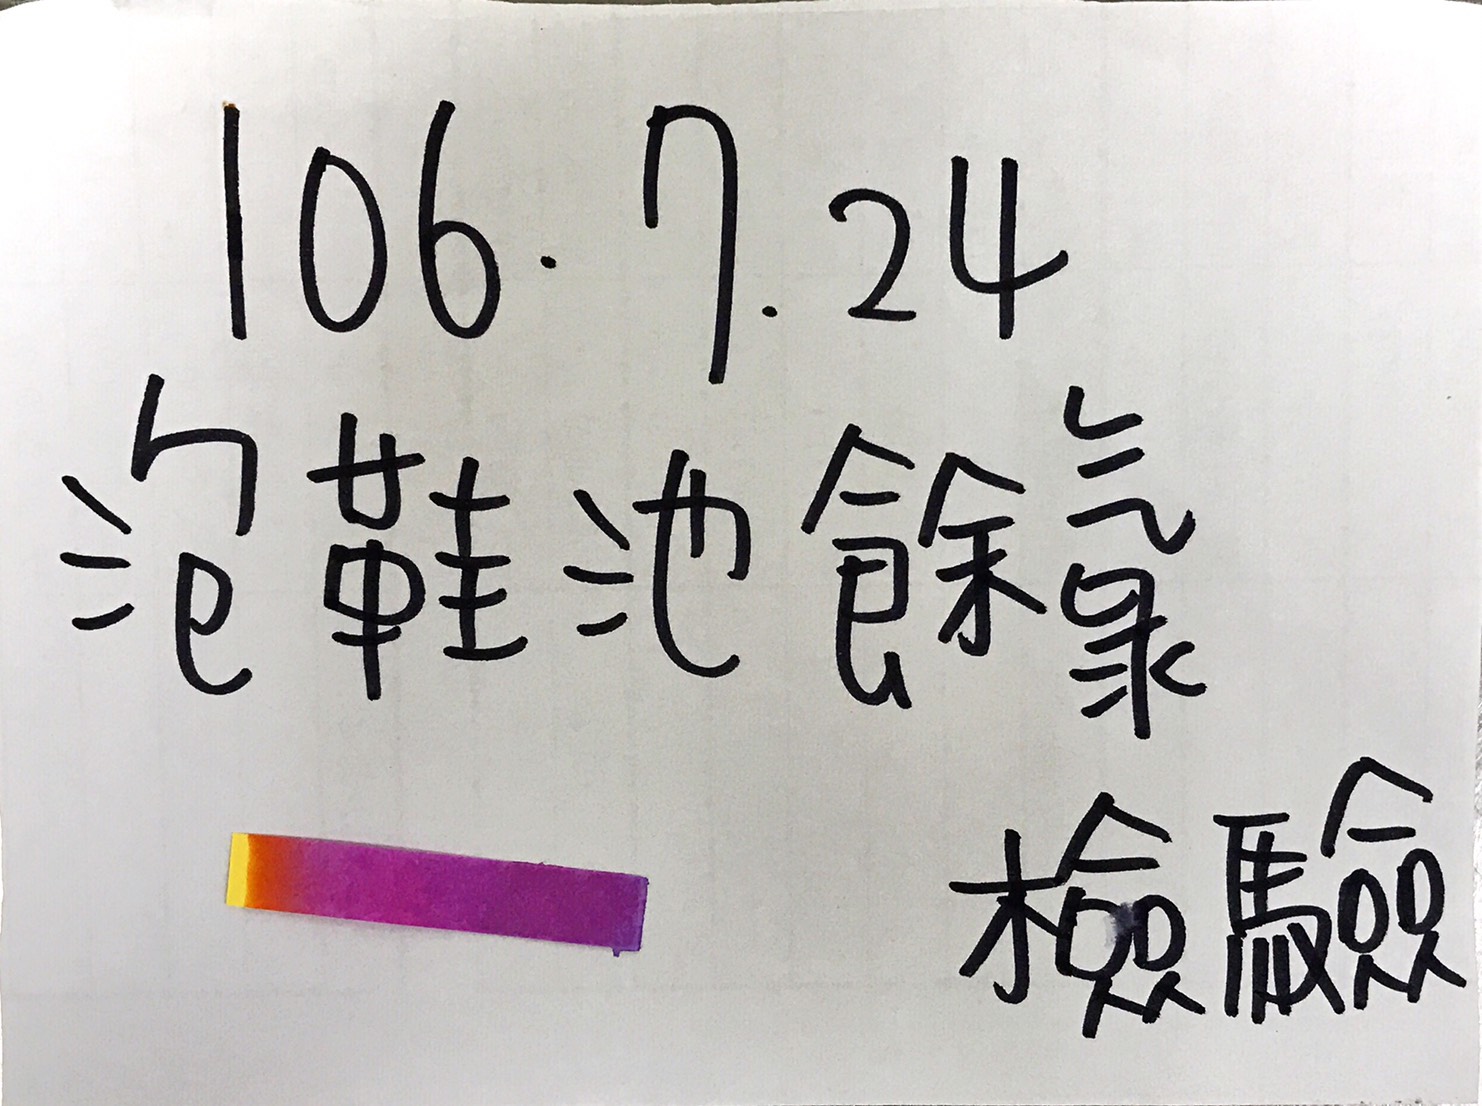 106.7.24
泡鞋池餘氯
檢驗